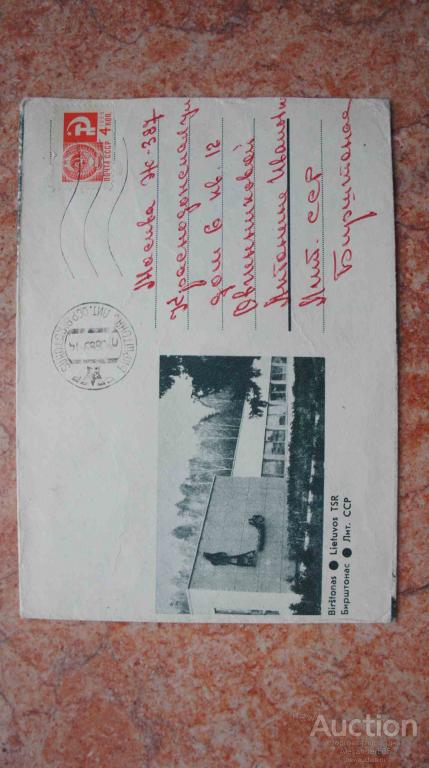 ПОЧТА СССР
4 КОП.
Москва Ж-387
Краснодонская ул
дом 6 кв. 12
Овчинниковой
Антонине Ивановне
Лит. ССР
Бирштонас
Birštonas ● Lietuvos TSR
Бирштонас ● Лит. ССР
Auction